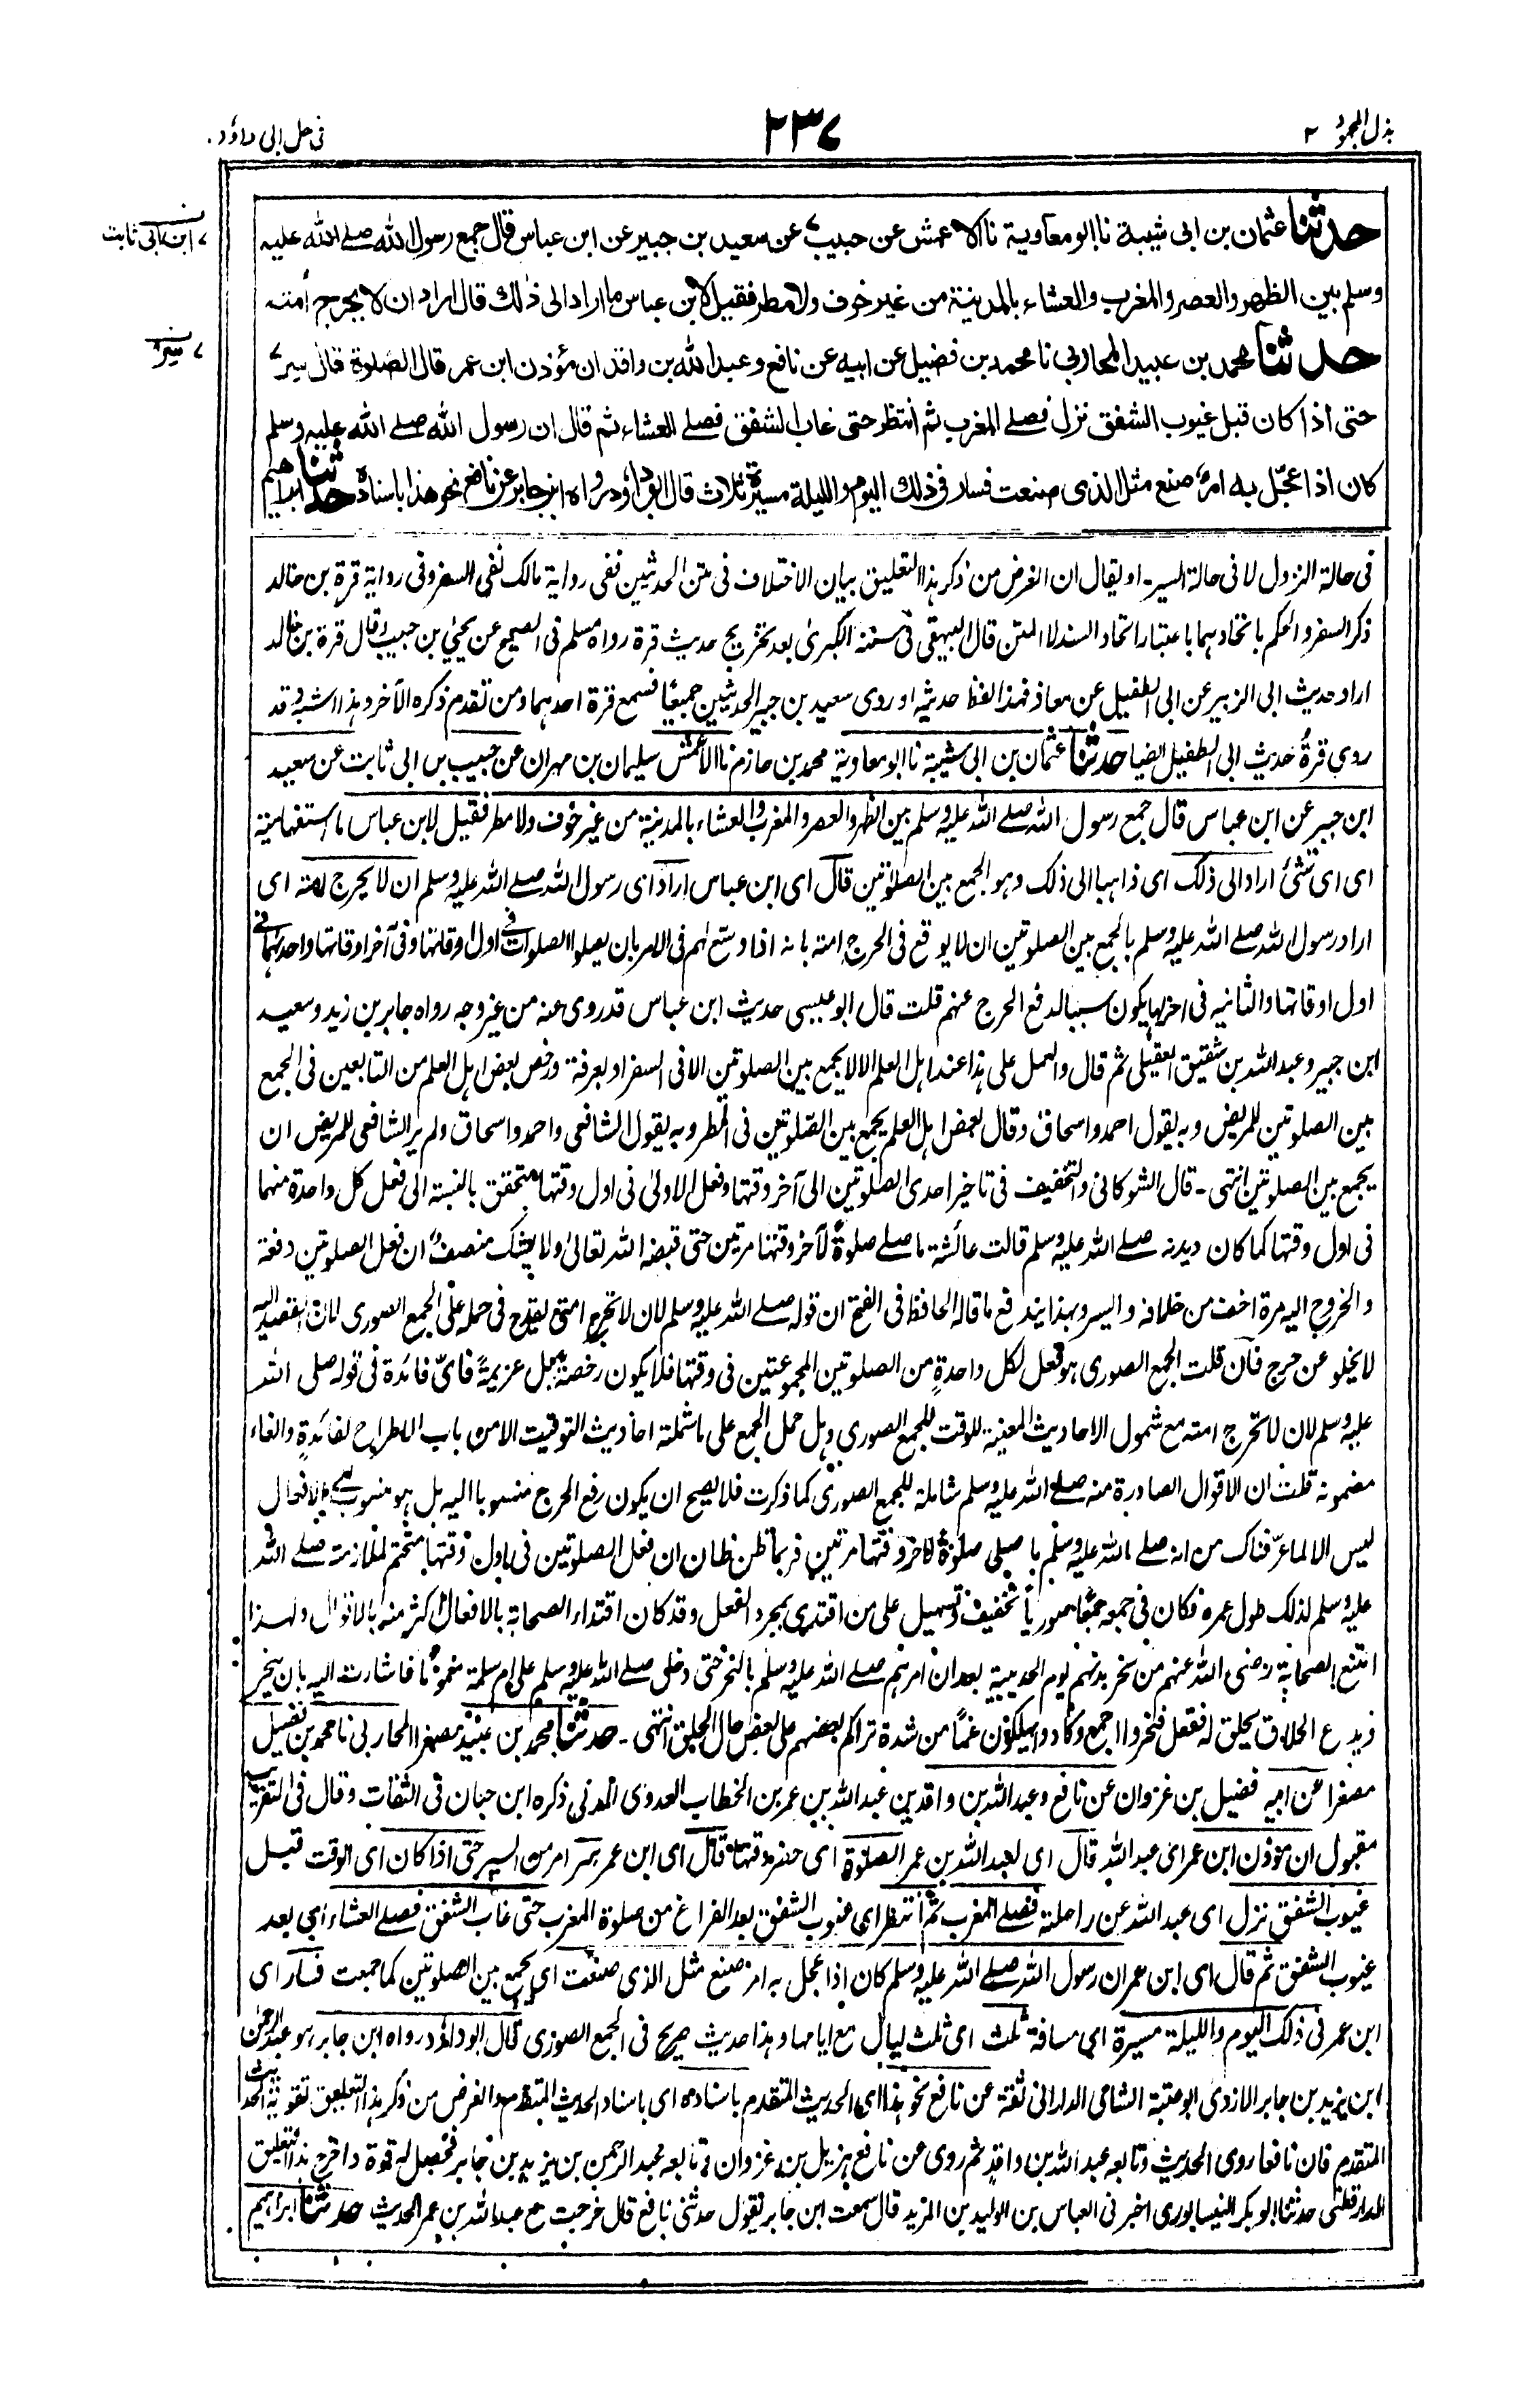 بذل المجهود ٢
٢٣٧
فى حل ابى داؤد
حدثنا عثمان بن ابى شيبة نا ابو معاوية نا الاعمش عن حبيب عن سعيد بن جبير عن ابن عباس قال جمع رسول الله صلے الله عليه
ابن ابى ثابت
وسلم بين الظهر والعصر والمغرب والعشاء بالمدينة من غير خوف ولا مطر فقيل لابن عباس ما اراد الى ذلك قال اراد ان لا يحرج امته
حدثنا محمد بن عبيد المحاربى نا محمد بن فضيل عن ابيه عن نافع وعبد الله بن واقد ان مؤذن ابن عمر قال الصلوة قال سر
حتى اذا كان قبل غيوب الشفق نزل فصلے المغرب ثم انتظر حتى غاب الشفق فصلے العشاء ثم قال ان رسول الله صلے الله عليه وسلم
كان اذا عجّل به امرٌ صنع مثل الذى صنعت فسار فى ذلك اليوم والليلة مسيرة ثلاث قال ابو داؤد رواه ابن جابر عن نافع نحو هذا باسناده حدثنا ابراهيم
فى حالة النزول لا فى حالة السير۔ او يقال ان الغرض من ذكر هذا التعليق بيان الاختلاف فى متن الحديثين ففى رواية مالك نفى السفر وفى رواية قرة بن خالد
ذكر السفر والحكم باتحادهما باعتبار اتحاد السند لا المتن قال البيهقى فى سننه الكبرىٰ بعد تخريج حديث قرة رواه مسلم فى الصحيح عن يحيٰى بن حبيب وقال قرة بن خالد
اراد حديث ابى الزبير عن ابى الطفيل عن معاذ فهذا لفظ حديثه او روى سعيد بن جبير الحديثين جميعًا فسمع قرة احدهما ومن تقدم ذكره الآخر وهذا اشبه قد
روى قرةُ حديث ابى الطفيل ايضا حدثنا عثمان بن ابى شيبة نا ابو معاوية محمد بن حازم نا الأعمش سليمان بن مهران عن حبيب بن ابى ثابت عن سعيد
ابن جبير عن ابن عباس قال جمع رسول الله صلے الله عليه وسلم بين الظهر والعصر والمغرب والعشاء بالمدينة من غير خوف ولا مطر فقيل لابن عباس ما استفهامية
اى اى شئ اراد الى ذلك اى ذاهبا الى ذلك وهو الجمع بين الصلوتين قال اى ابن عباس اراد اى رسول الله صلے الله عليه وسلم ان لا يحرج امته اى
اراد رسول الله صلے الله عليه وسلم بالجمع بين الصلوتين ان لا يوقع فى الحرج امته بانه اذا وسّع لهم فى الامر بان يصلوا الصلوات فى اول اوقاتها وفى آخر اوقاتها واحدٰهما فى
اول اوقاتها والثانيه فى اخرها يكون سببا لدفع الحرج عنهم قلت قال ابو عيسى حديث ابن عباس قد روى عنه من غير وجه رواه جابر بن زيد وسعيد
ابن جبير وعبد الله بن شقيق العقيلى ثم قال والعمل على هذا عند اهل العلم الا لا يجمع بين الصلوتين الا فى السفر او بعرفة ورخص بعض اهل العلم من التابعين فى الجمع
بين الصلوتين للمريض وبه يقول احمد واسحاق وقال بعض اهل العلم يجمع بين الصلوتين فى المطر وبه يقول الشافعى واحمد واسحاق ولم ير الشافعى للمريض ان
يجمع بين الصلوتين انتهى۔ قال الشوكانى والتخفيف فى تاخير احدى الصلوتين الى آخر وقتها وفعل الاولىٰ فى اول وقتها متحقق بالنسبة الى فعل كل واحدة منهما
فى اول وقتها كما كان ديدنه صلے الله عليه وسلم قالت عائشة ما صلے صلوةً لآخر وقتها مرتين حتى قبضه الله تعالىٰ ولا يشك منصف ان فعل الصلوتين دفعة
والخروج اليه مرة اخف من خلافه وايسر وبهذا يندفع ما قاله الحافظ فى الفتح ان قوله صلے الله عليه وسلم لان لا تحرج امتى يقدح فى حمله على الجمع الصورى لان القصد اليه
لا يخلو عن حرج فان قلت الجمع الصورى هو فعل لكل واحدةٍ من الصلوتين المجموعتين فى وقتها فلا يكون رخصة بل عزيمةً فاىّ فائدة فى قوله صلى الله
عليه وسلم لان لا تحرج امته مع شمول الاحاديث المعينة للوقت للجمع الصورى وهل حمل الجمع على ما شملته احاديث التوقيت الا من باب الاطراح لفائدةٍ والغاء
مضمونه قلت ان الاقوال الصادرة منه صلے الله عليه وسلم شاملة للجمع الصورى كما ذكرت فلا يصح ان يكون رفع الحرج منسوبا اليه بل هو منسوب الى الافعال
ليس الا لما عرّفناك من انه صلے الله عليه وسلم ما صلى صلوةً لآخر وقتها مرتين فربما ظن ظان ان فعل الصلوتين فى اول وقتها متحتم لملازمته صلے الله
عليه وسلم لذلك طول عمره فكان فى جمعه جمعًا صوريًا تخفيف وتسهيل على من اقتدى بمجرد الفعل وقد كان اقتداء الصحابة بالافعال اكثر منه بالاقوال ولهذا
امتنع الصحابة رضى الله عنهم من نحر بدنهم يوم الحديبية بعد ان امرهم صلے الله عليه وسلم بالنحر حتى دخل صلے الله عليه وسلم على ام سلمة مغمومًا فاشارت اليه بان ينحر
ويدع الحلاق يحلق له ففعل فنحروا اجمع وكادوا يهلكون غمًا من شدة تراكم بعضهم على بعض حال الحلق انتهى۔ حدثنا محمد بن عبيد مصغرا المحاربى نا محمد بن فضيل
مصغرا عن ابيه فضيل بن غزوان عن نافع وعبد الله بن واقد بن عبد الله بن عمر بن الخطاب العدوى المدنى ذكره ابن حبان فى الثقات وقال فى التقريب
مقبول ان مؤذن ابن عمر اى عبد الله قال اى لعبد الله بن عمر الصلوة اى حضر وقتها قال اى ابن عمر سر امر من السير حتى اذا كان اى الوقت قبل
غيوب الشفق نزل اى عبد الله عن راحلته فصلے المغرب ثم انتظر اى غيوب الشفق بعد الفراغ من صلوة المغرب حتى غاب الشفق فصلے العشاء اى بعد
غيوب الشفق ثم قال اى ابن عمر ان رسول الله صلے الله عليه وسلم كان اذا عجل به امر صنع مثل الذى صنعت اى يجمع بين الصلوتين كما جمعت فسار اى
ابن عمر فى ذلك اليوم والليلة مسيرة اى مسافة ثلث اى ثلث ليال مع ايامها وهذا حديث صريح فى الجمع الصورى قال ابو داؤد رواه ابن جابر هو عبد الرحمن
ابن يزيد بن جابر الازدى ابو عتبة الشامى الدارانى ثقة عن نافع نحو هذا اى الحديث المتقدم باسناده اى باسناد الحديث المتقدم والغرض من ذكر هذا التعليق تقوية الحديث
المتقدم فان نافعا روى الحديث وتابعه عبد الله بن واقد ثم روى عن نافع فضيل بن غزوان وتابعه عبد الرحمن بن يزيد بن جابر فحصل له قوة واخرج هذا التعليق
الدارقطنى حدثنا ابو بكر النيسابورى اخبرنى العباس بن الوليد بن المزيد قال سمعت ابن جابر يقول حدثنى نافع قال خرجت مع عبد الله بن عمر الحديث حدثنا ابراهيم